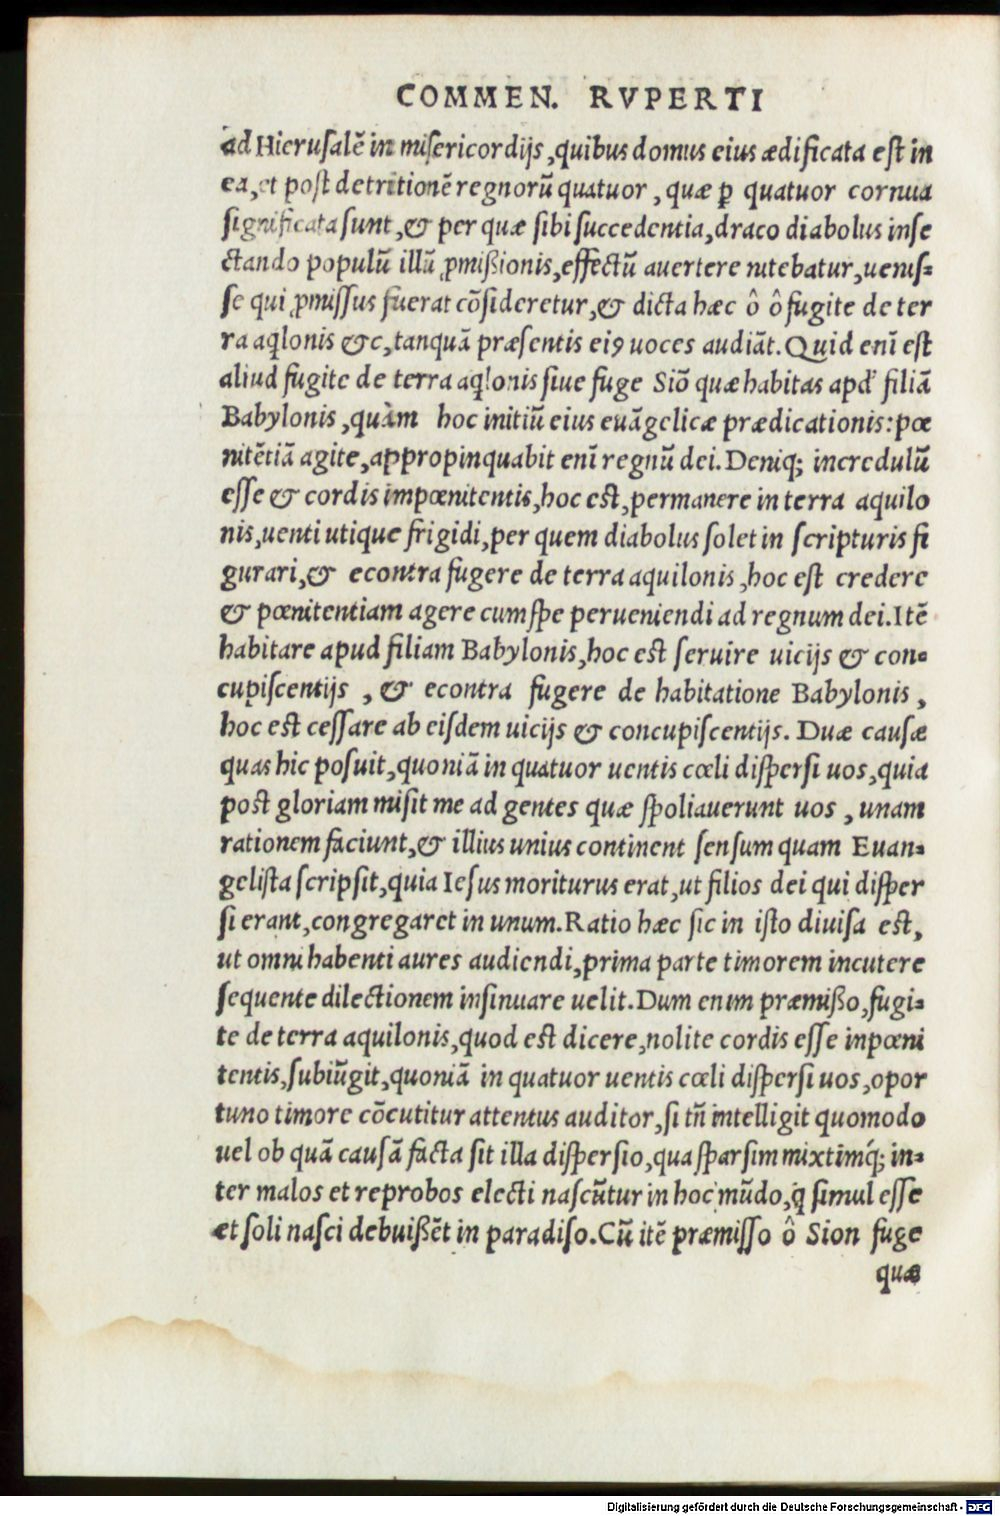 COMMEN. RVPERTI
ad Hierusalē in misericordijs, quibus domus eius ædificata est in
ea, et post detritionē regnorū quatuor, quæ ꝑ quatuor cornua
significata sunt, & per quæ sibi succedentia, draco diabolus inse
ctando populū illū ꝓmißionis, effectū auertere nitebatur, uenis-
se qui ꝓmissus fuerat cōsideretur, & dicta hæc ô ô fugite de ter
ra aq̇lonis &c, tanquā præsentis eiꝰ uoces audiāt. Quid enī est
aliud fugite de terra aq̇lonis siue fuge Siō quæ habitas apd' filiā
Babylonis, quàm hoc initiū eius euāgelicæ prædicationis: pœ
nitētiā agite, appropinquabit enī regnū dei. Deniq; incredulū
esse & cordis impœnitentis, hoc est, permanere in terra aquilo
nis, uenti utique frigidi, per quem diabolus solet in scripturis fi
gurari, & econtra fugere de terra aquilonis, hoc est credere
& pœnitentiam agere cum spe perueniendi ad regnum dei. Itē
habitare apud filiam Babylonis, hoc est seruire uicijs & con-
cupiscentijs, & econtra fugere de habitatione Babylonis,
hoc est cessare ab eisdem uicijs & concupiscentijs. Duæ causæ
quas hic posuit, quoniā in quatuor uentis cœli dispersi uos, quia
post gloriam misit me ad gentes quæ spoliauerunt uos, unam
rationem faciunt, & illius unius continent sensum quam Euan-
gelista scripsit, quia Iesus moriturus erat, ut filios dei qui disper
si erant, congregaret in unum. Ratio hæc sic in isto diuisa est,
ut omni habenti aures audiendi, prima parte timorem incutere
sequente dilectionem insinuare uelit. Dum enim præmißo, fugi-
te de terra aquilonis, quod est dicere, nolite cordis esse inpœni
tentis, subiūgit, quoniā in quatuor uentis cœli dispersi uos, opor
tuno timore cōcutitur attentus auditor, si tn̄ intelligit quomodo
uel ob quā causā facta sit illa dispersio, qua sparsim mixtimq́; in-
ter malos et reprobos electi nascūtur in hoc mūdo, q̇ simul esse
et soli nasci debuißēt in paradiso. Cū itē præmisso ô Sion fuge
quæ
Digitalisierung gefördert durch die Deutsche Forschungsgemeinschaft - DFG